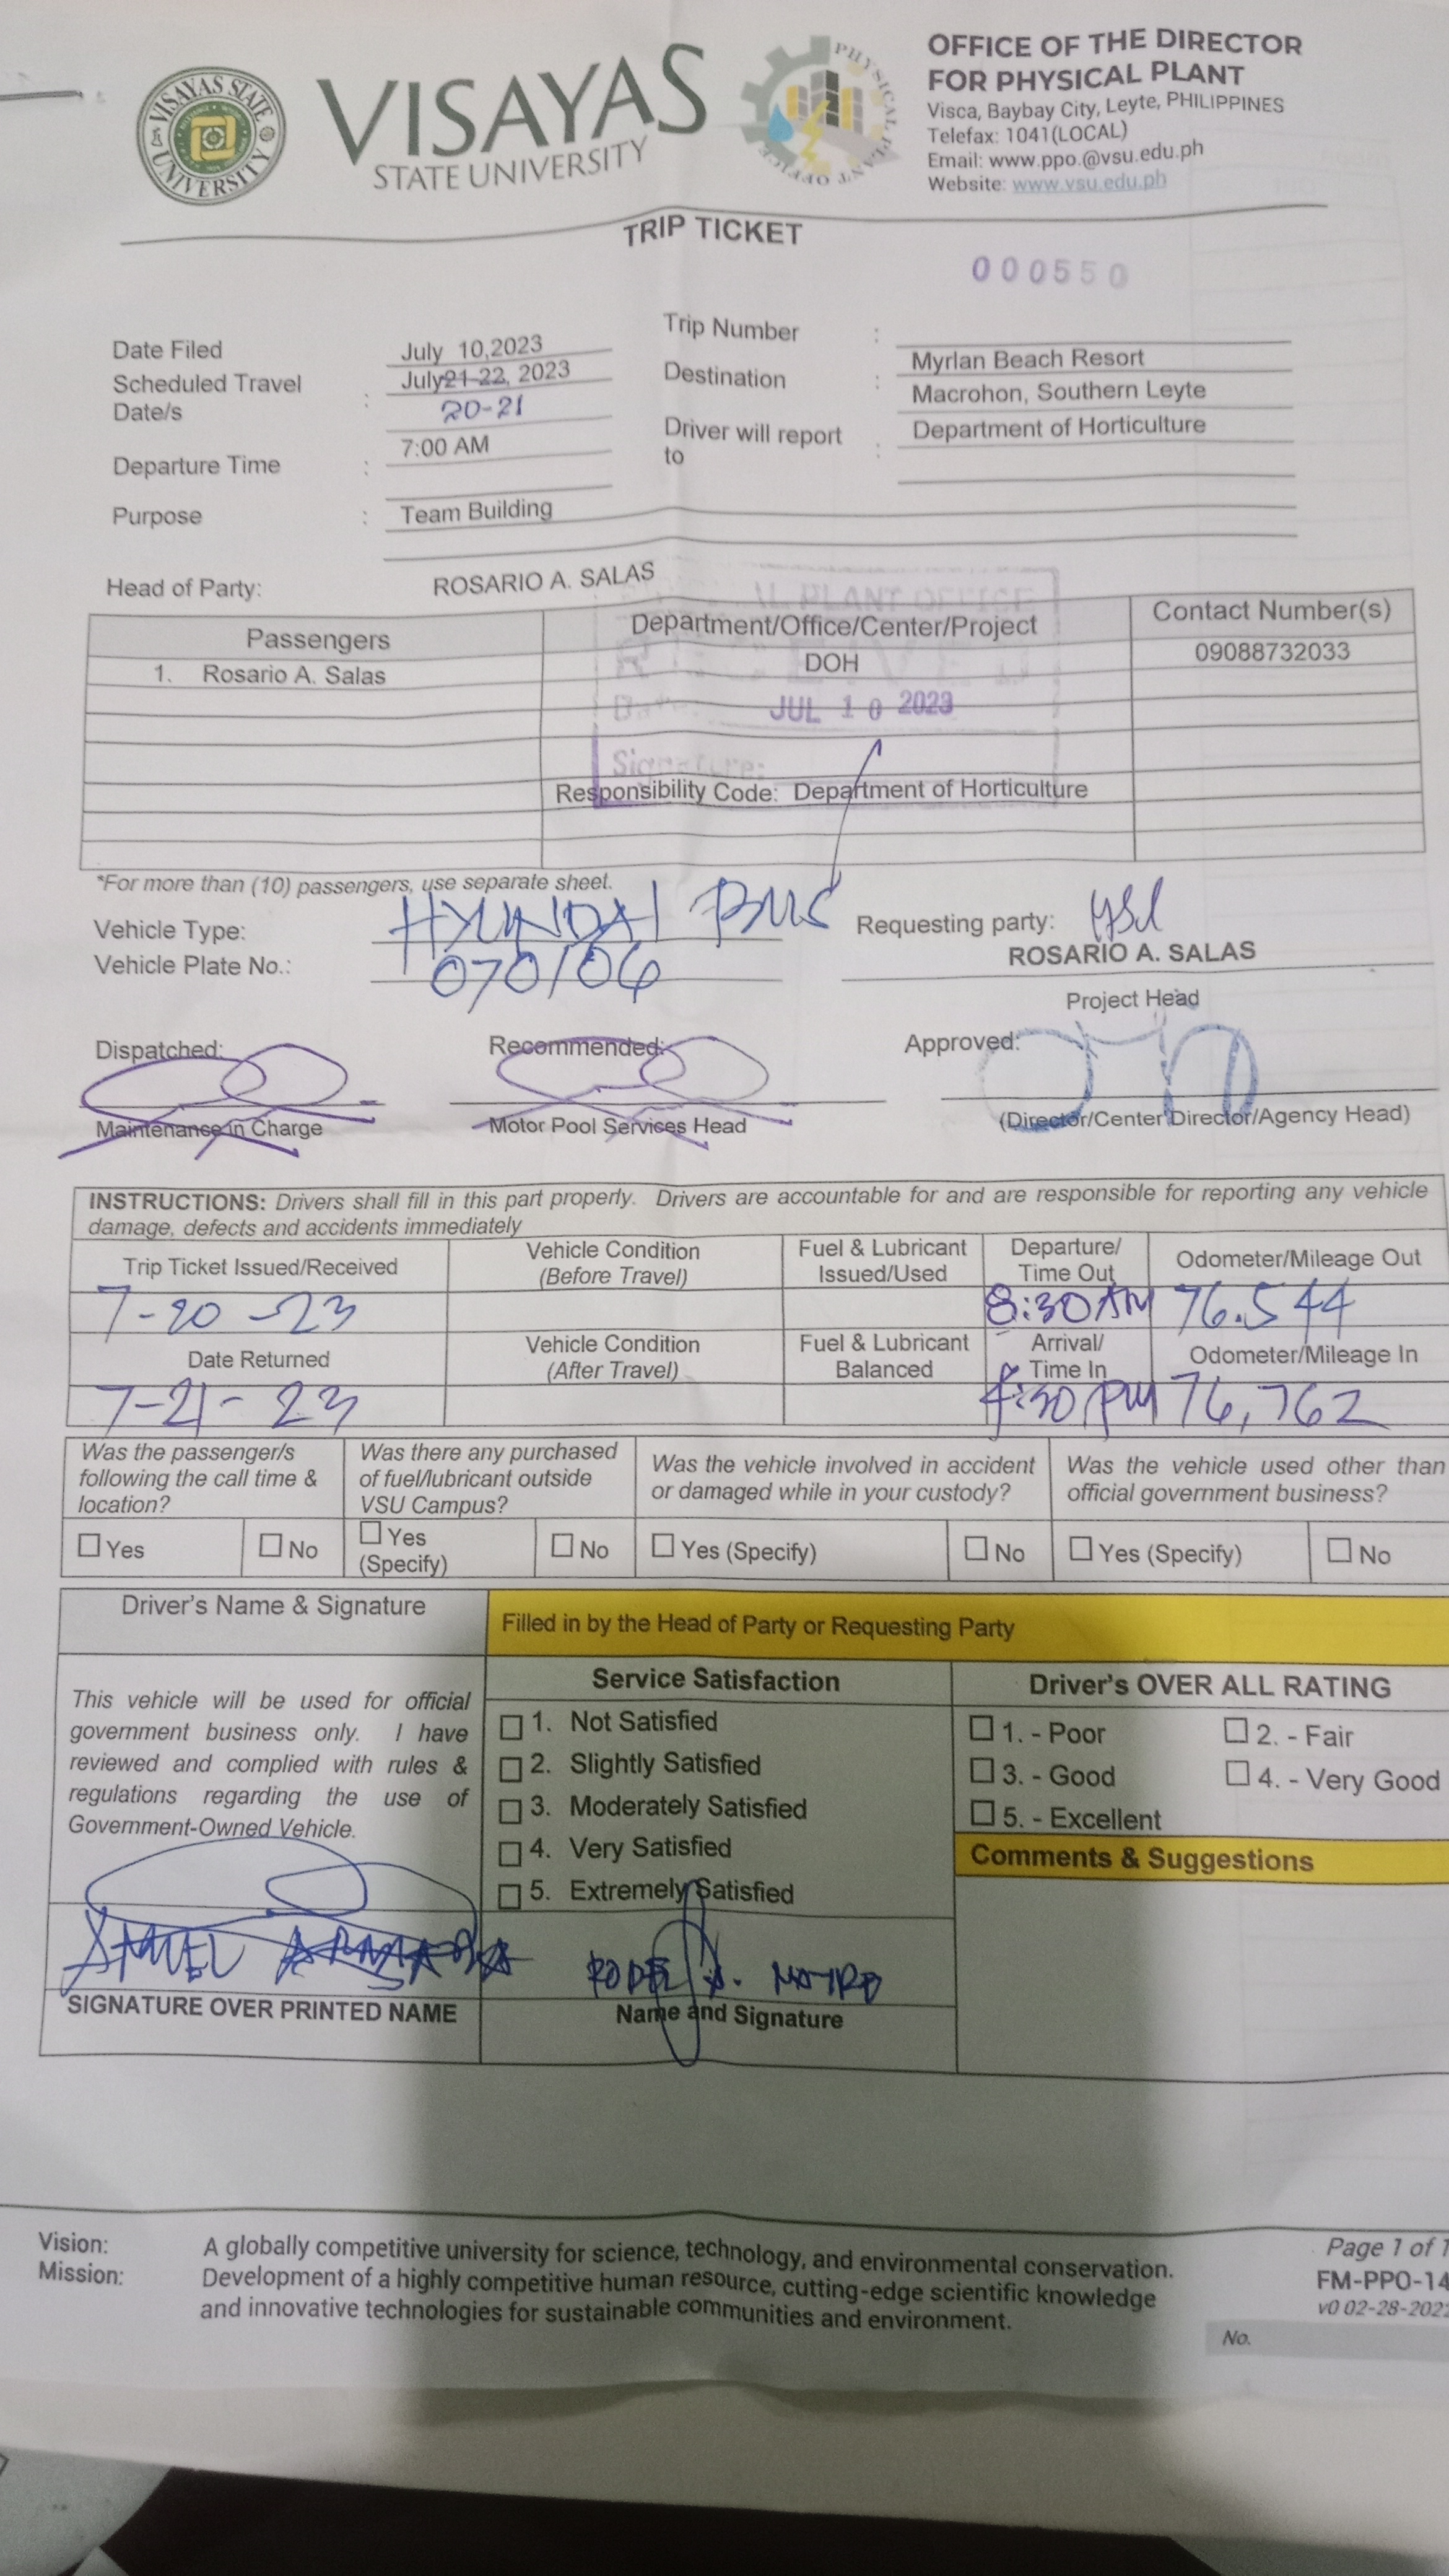 VISAYAS STATE UNIVERSITY
VISAYAS
STATE UNIVERSITY
PHYSICAL PLANT OFFICE
OFFICE OF THE DIRECTOR
FOR PHYSICAL PLANT
Visca, Baybay City, Leyte, PHILIPPINES
Telefax: 1041(LOCAL)
Email: www.ppo.@vsu.edu.ph
Website: www.vsu.edu.ph
TRIP TICKET
000550
Date Filed July 10,2023
Scheduled Travel Date/s : July 21-22, 2023
20-21
Departure Time : 7:00 AM
Purpose : Team Building
Trip Number :
Destination : Myrlan Beach Resort
Macrohon, Southern Leyte
Driver will report to : Department of Horticulture
Head of Party: ROSARIO A. SALAS
Passengers Department/Office/Center/Project Contact Number(s)
1. Rosario A. Salas DOH 09088732033
PLANT OFFICE
JUL 10 2023
Signature:
Responsibility Code: Department of Horticulture
*For more than (10) passengers, use separate sheet.
Vehicle Type: HYUNDAI BUS
Vehicle Plate No.: 070106
Requesting party:
ROSARIO A. SALAS
Project Head
Dispatched: Recommended: Approved:
Maintenance in Charge Motor Pool Services Head (Director/Center Director/Agency Head)
INSTRUCTIONS: Drivers shall fill in this part properly. Drivers are accountable for and are responsible for reporting any vehicle
damage, defects and accidents immediately
Trip Ticket Issued/Received Vehicle Condition (Before Travel) Fuel & Lubricant Issued/Used Departure/ Time Out Odometer/Mileage Out
7-20-23 8:30 AM 76.544
Date Returned Vehicle Condition (After Travel) Fuel & Lubricant Balanced Arrival/ Time In Odometer/Mileage In
7-21-23 4:30 PM 76,762
Was the passenger/s following the call time & location?
Was there any purchased of fuel/lubricant outside VSU Campus?
Was the vehicle involved in accident or damaged while in your custody?
Was the vehicle used other than official government business?
Yes No Yes (Specify) No Yes (Specify) No Yes (Specify) No
Driver's Name & Signature
Filled in by the Head of Party or Requesting Party
This vehicle will be used for official
government business only. I have
reviewed and complied with rules &
regulations regarding the use of
Government-Owned Vehicle.
SIGNATURE OVER PRINTED NAME
Service Satisfaction
1. Not Satisfied
2. Slightly Satisfied
3. Moderately Satisfied
4. Very Satisfied
5. Extremely Satisfied
Name and Signature
Driver's OVER ALL RATING
1. - Poor 2. - Fair
3. - Good 4. - Very Good
5. - Excellent
Comments & Suggestions
Vision: A globally competitive university for science, technology, and environmental conservation.
Mission: Development of a highly competitive human resource, cutting-edge scientific knowledge
and innovative technologies for sustainable communities and environment.
Page 1 of 1
FM-PPO-14
v0 02-28-2022
No.